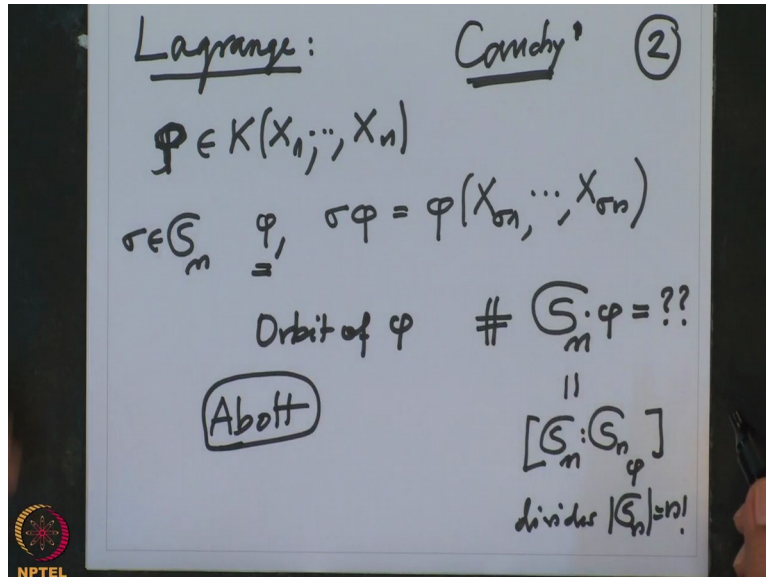 Lagrange : Cauchy' ②
φ ∈ K(X₁,..., Xₙ)
σ ∈ 𝔖ₙ φ, σφ = φ(X_σ1, ..., X_σn)
Orbit of φ # 𝔖ₙ·φ = ??
Abott ||
[𝔖ₙ : 𝔖ₙ_φ]
divides |𝔖ₙ| = n!
NPTEL